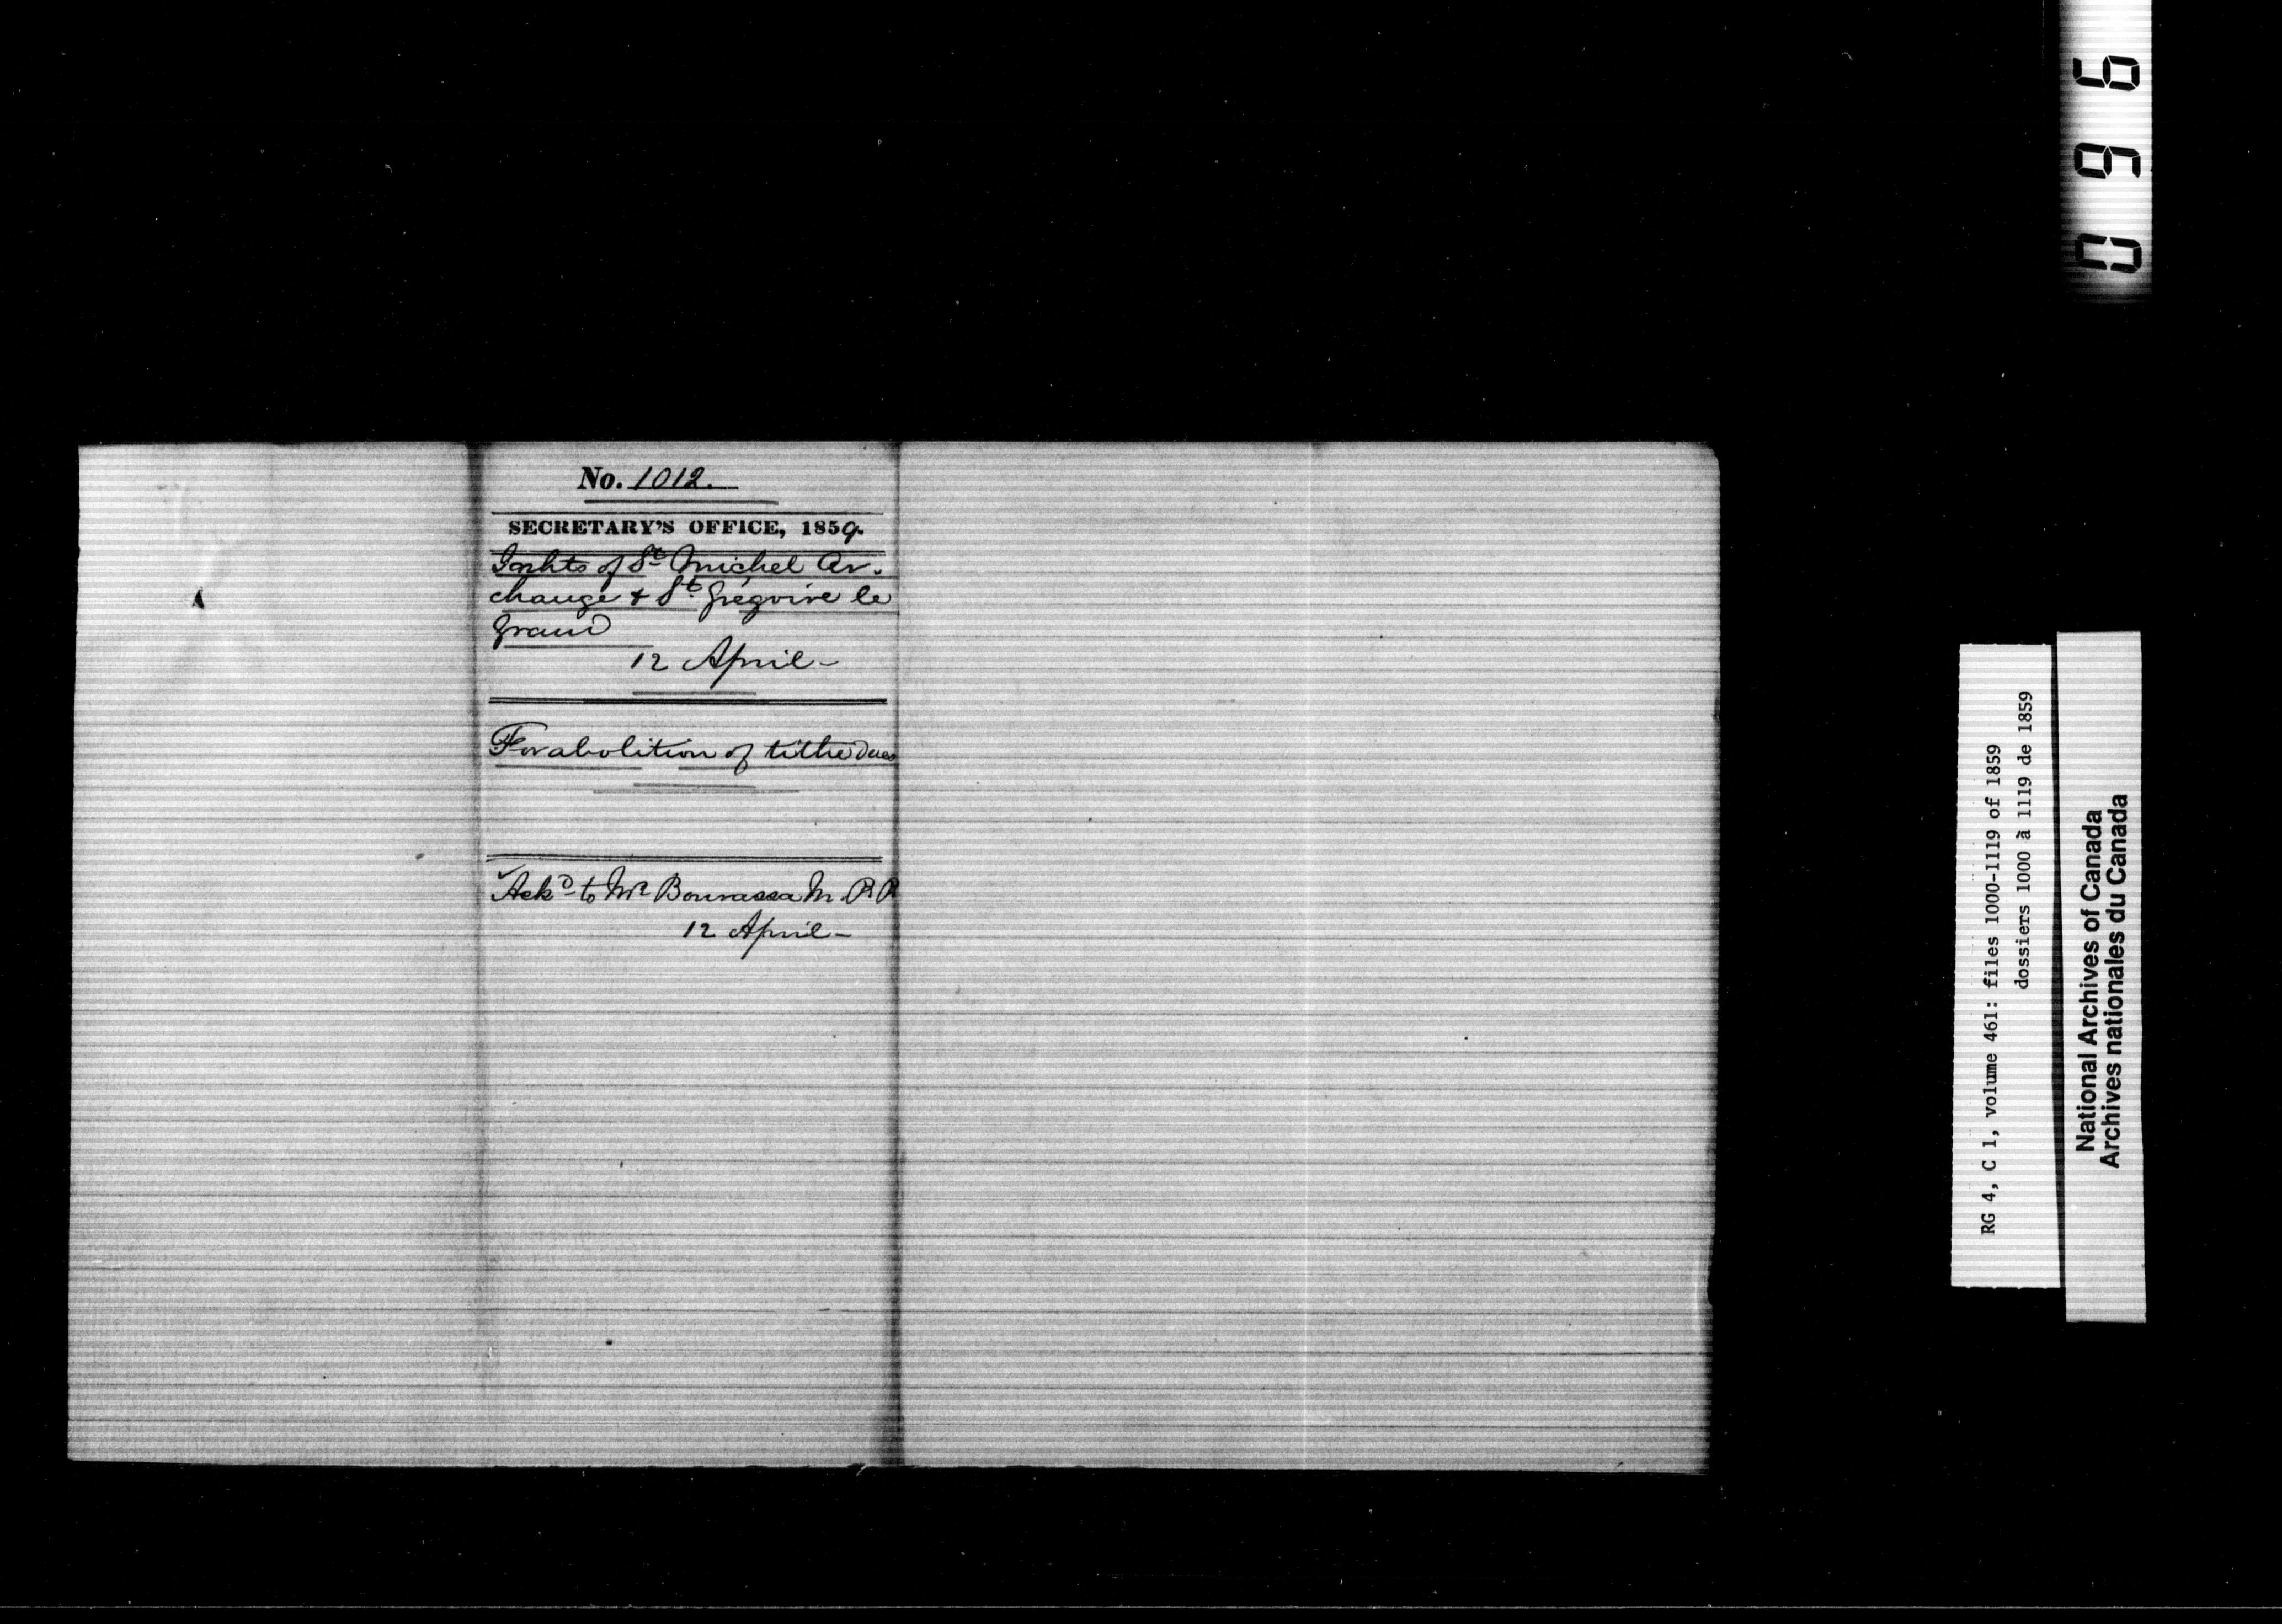 No. 1012.
SECRETARY'S OFFICE, 1859.
Inhts of St Michel Ar-
change & St Grégoire le
Grand
12 April -
For abolition of tithe dues
Ackd to Mr Bourassa M.P.P
12 April -
096
RG 4, C 1, volume 461: files 1000-1119 of 1859
dossiers 1000 à 1119 de 1859
National Archives of Canada
Archives nationales du Canada